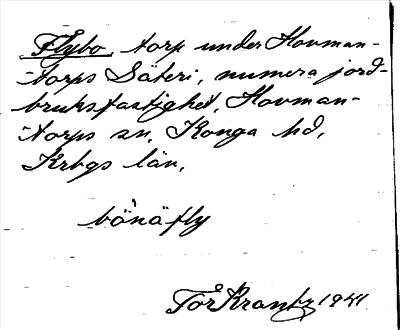 Flybo, torp under Hovman-
torps Säteri, numera jord-
bruksfastighet, Hovman-
torps sn, Konga hd,
Krbgs län.
bönäfly
Tor Krantz 1941